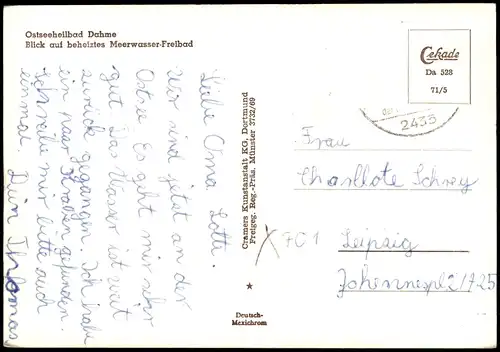 Ostseeheilbad Dahme
Blick auf beheiztes Meerwasser-Freibad
Liebe Oma Lotte!
Wir sind jetzt an der
Ostsee. Es geht mir sehr
gut. Das Wasser ist weit
zurück gegangen. Ich habe
ein paar Krabben gefunden.
Schreibe mir bitte auch
einmal. Dein Thomas
Cramers Kunstanstalt KG, Dortmund
Freigeg. Reg.-Präs. Münster 3732/69
★
Deutsch-
Mexichrom
Cekade
Da 528
71/5
2435
Frau
Charllote Schrey
701 Leipzig
Johannespl 2/725